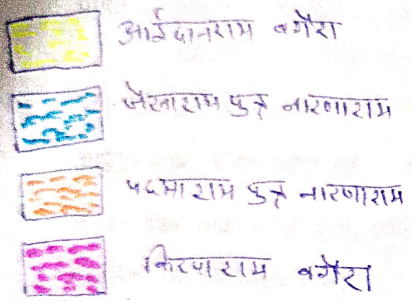 आईदानराम वगैरा
जेसाराम पुत्र नारणाराम
पदमाराम पुत्र नारणाराम
किरपाराम वगैरा